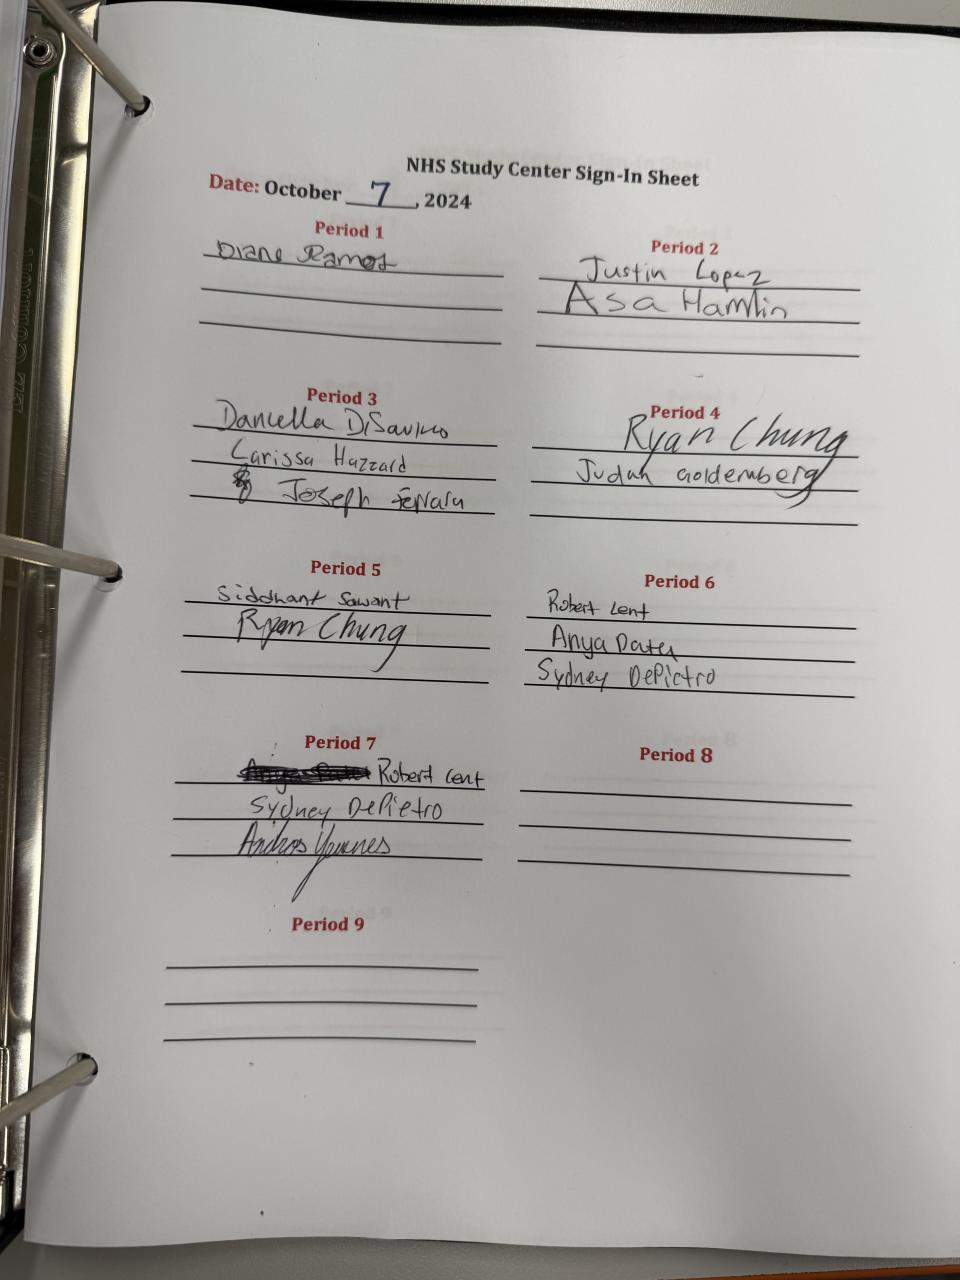 NHS Study Center Sign-In Sheet
Date: October 7, 2024
Period 1
Diane Ramos
Period 2
Justin Lopez
Asa Hamlin
Period 3
Daniella DiSavino
Larissa Hazzard
Joseph Ferrara
Period 4
Ryan Chung
Judah Goldemberg
Period 5
Siddhant Sawant
Ryan Chung
Period 6
Robert Lent
Anya Patel
Sydney DePietro
Period 7
Robert Lent
Sydney DePietro
Andros Younes
Period 8
Period 9